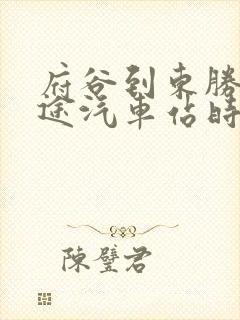 府谷到東勝
途汽車佔時
陳璧君